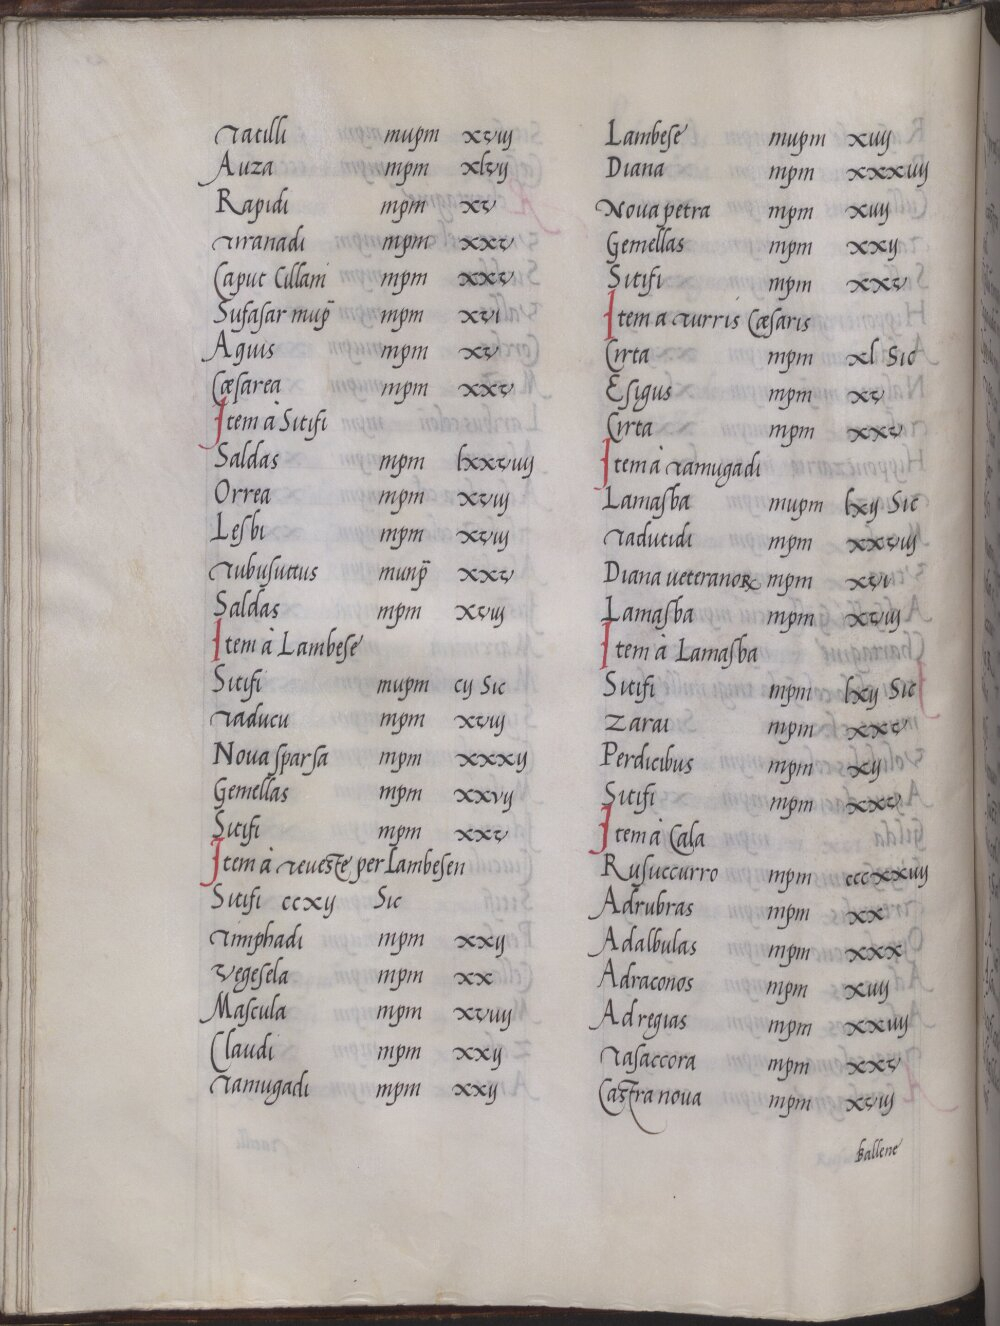 Tatilli mupm xviij
Auza mpm xlvij
Rapidi mpm xv
Tiranadi mpm xxv
Caput Cillani mpm xxv
Sufasar mup̄ mpm xvi
Aquis mpm xv
Cæsarea mpm xxv
Item à Sitifi
Saldas mpm lxxviiij
Orrea mpm xviij
Lesbi mpm xviij
Tubusuttus munp̄ xxv
Saldas mpm xviij
Item à Lambese
Sitifi mupm cij Sic
Taducu mpm xviij
Noua sparsa mpm xxxij
Gemellas mpm xxvij
Sitifi mpm xxv
Item à Teueste per Lambesen
Sitifi ccxij Sic
Timphadi mpm xxij
Vegesela mpm xx
Mascula mpm xviiij
Claudi mpm xxij
Tamugadi mpm xxij
Lambese mupm xiiij
Diana mpm xxxiiij
Noua petra mpm xiiij
Gemellas mpm xxij
Sitifi mpm xxv
Item a Turris Cæsaris
Cirta mpm xl Sic
Esigus mpm xv
Cirta mpm xxv
Item à Tamugadi
Lamasba mupm lxij Sic
Tadutidi mpm xxviij
Diana ueteranoꝝ mpm xvi
Lamasba mpm xviij
Item à Lamasba
Sitifi mpm lxij Sic
Zarai mpm xxv
Perdicibus mpm xij
Sitifi mpm xxv
Item à Cala
Rusuccurro mpm cccxxiiij
Adrubras mpm xx
Adalbulas mpm xxx
Adraconos mpm xiiij
Ad regias mpm xxiiij
Tasaccora mpm xxv
Castra noua mpm xviij
ballene